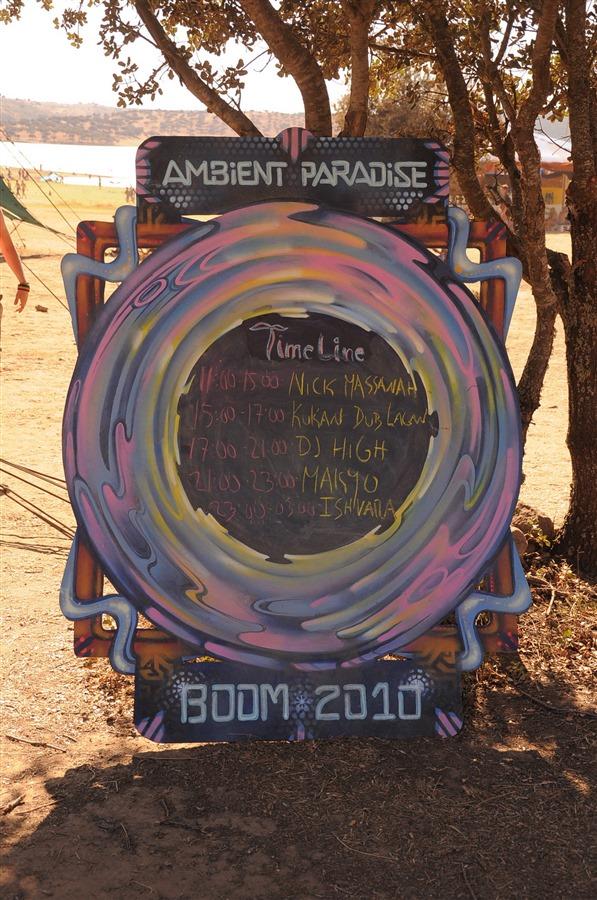 AMBIENT PARADISE
TimeLine
11:00-15:00 NICK MASSANAH
15:00-17:00 KUKAN DUB LAGAN
17:00-21:00 DJ HIGH
21:00-23:00 MAKYO
23:00-03:00 ISHVARA
BOOM 2010